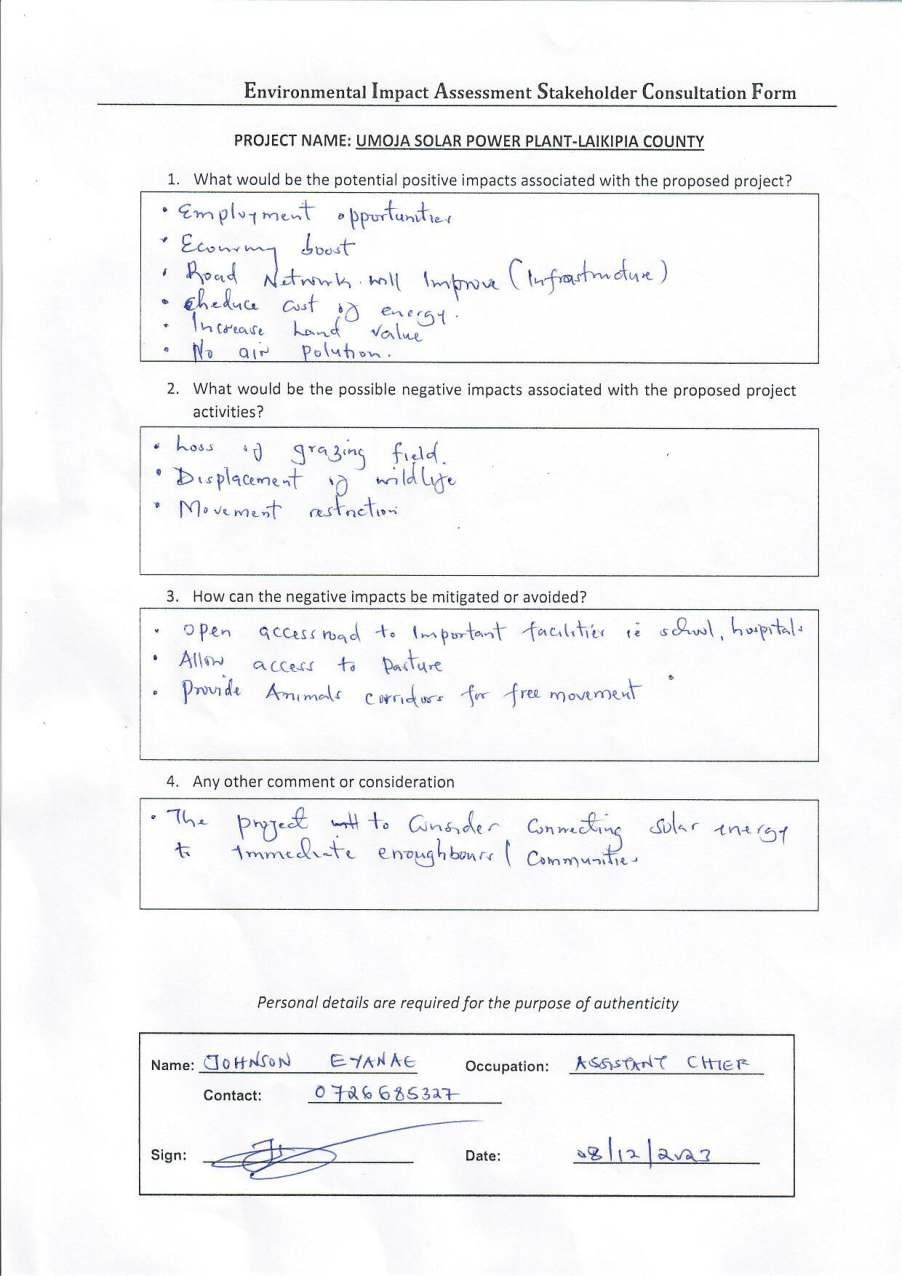 Environmental Impact Assessment Stakeholder Consultation Form
PROJECT NAME: UMOJA SOLAR POWER PLANT-LAIKIPIA COUNTY
1. What would be the potential positive impacts associated with the proposed project?
• Employment opportunities
• Economy boost
• Road Network will Improve (Infrastructure)
• Reduce cost of energy.
• Increase Land value
• No air Polution.
2. What would be the possible negative impacts associated with the proposed project
activities?
• Loss of grazing field.
• Displacement of wildlife
• Movement restriction
3. How can the negative impacts be mitigated or avoided?
• Open access road to Important facilities ie school, hospitals
• Allow access to Pasture
• Provide Animals corridors for free movement
4. Any other comment or consideration
• The project to Consider Connecting Solar energy
to Immediate enoughbours / Communities
Personal details are required for the purpose of authenticity
Name: JOHNSON EYANAE Occupation: ASSISTANT CHIEF
Contact: 0726685327
Sign: Date: 08/12/2023